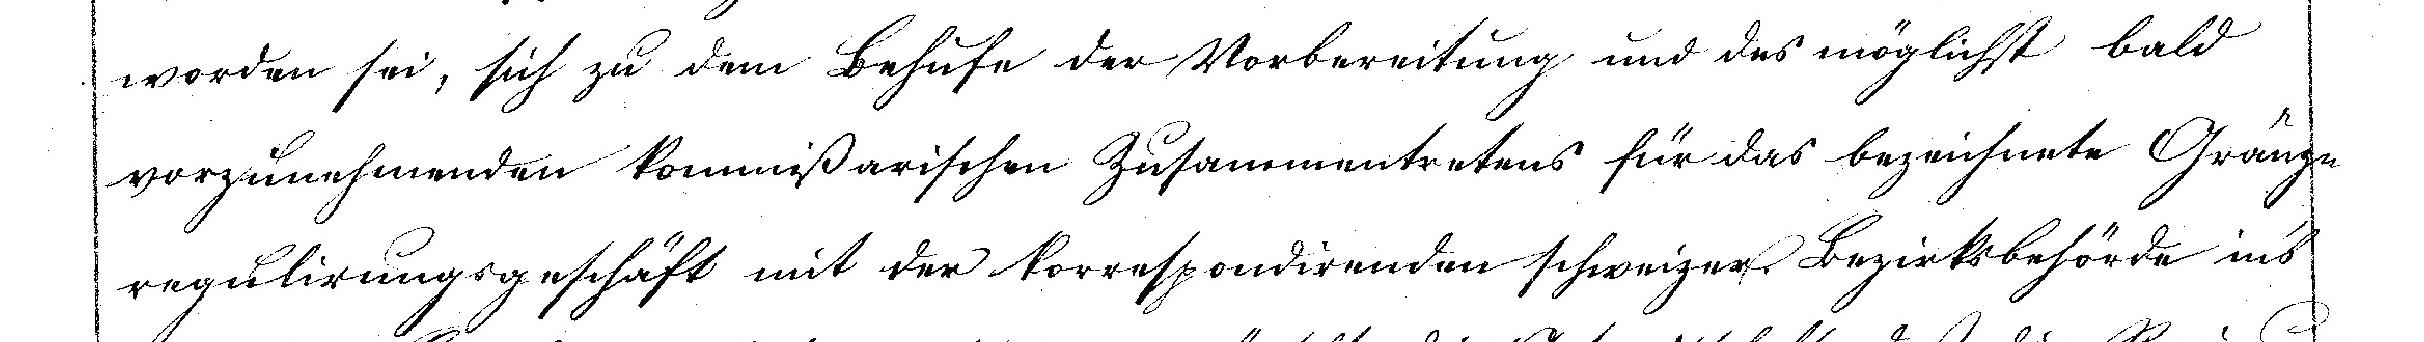 worden sei, sich zu dem Behufe der Vorbereitung und des möglichst bald
vorzunehmenden kommißarischen Zusammentretens für das bezeichnete Gränz-
regulirungsgeschäft mit der korrespondirenden schweizer. Bezirksbehörde in's